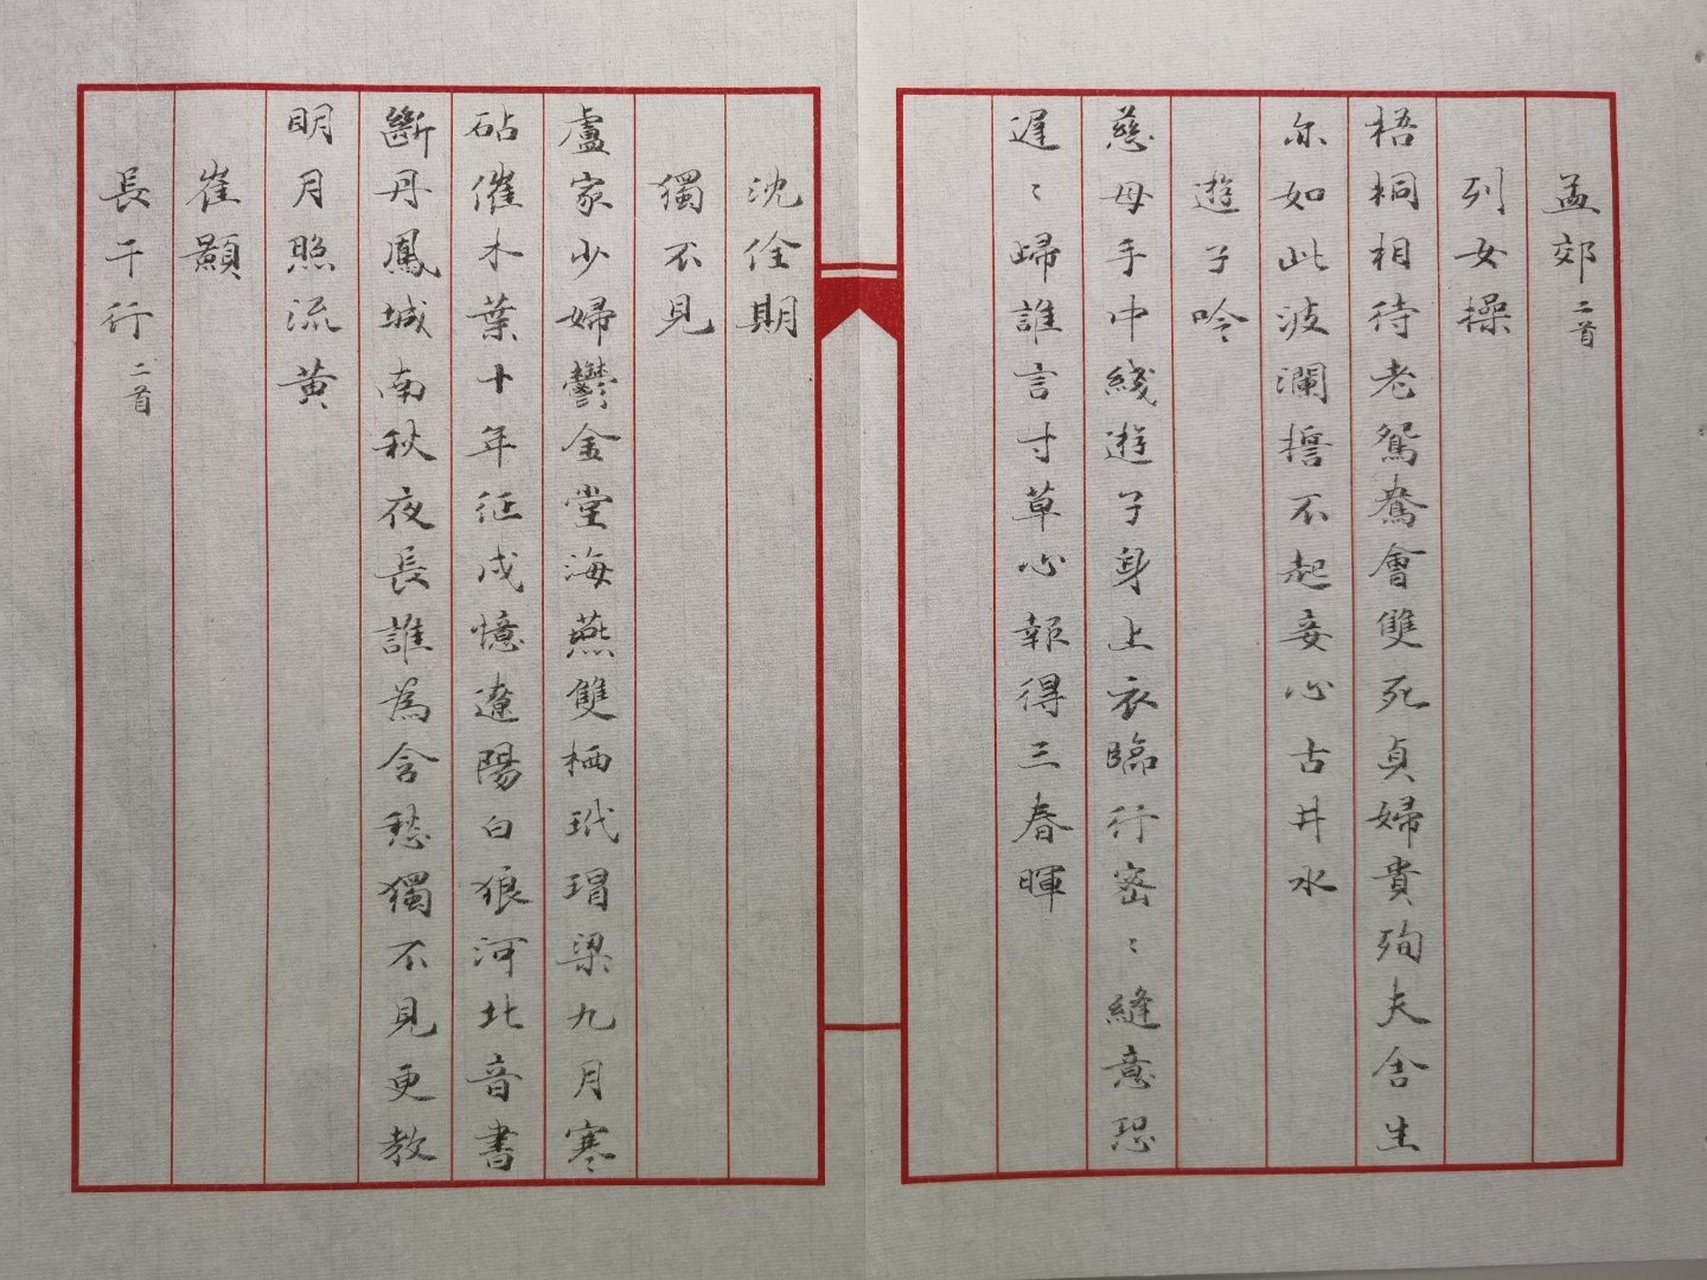 孟郊二首
列女操
梧桐相待老鴛鴦會雙死貞婦貴殉夫舍生
亦如此波瀾誓不起妾心古井水
遊子吟
慈母手中綫遊子身上衣臨行密〻縫意恐
遲〻歸誰言寸草心報得三春暉
沈佺期
獨不見
盧家少婦鬱金堂海燕雙栖玳瑁梁九月寒
砧催木葉十年征戍憶遼陽白狼河北音書
斷丹鳳城南秋夜長誰為含愁獨不見更教
明月照流黄
崔顥
長干行二首